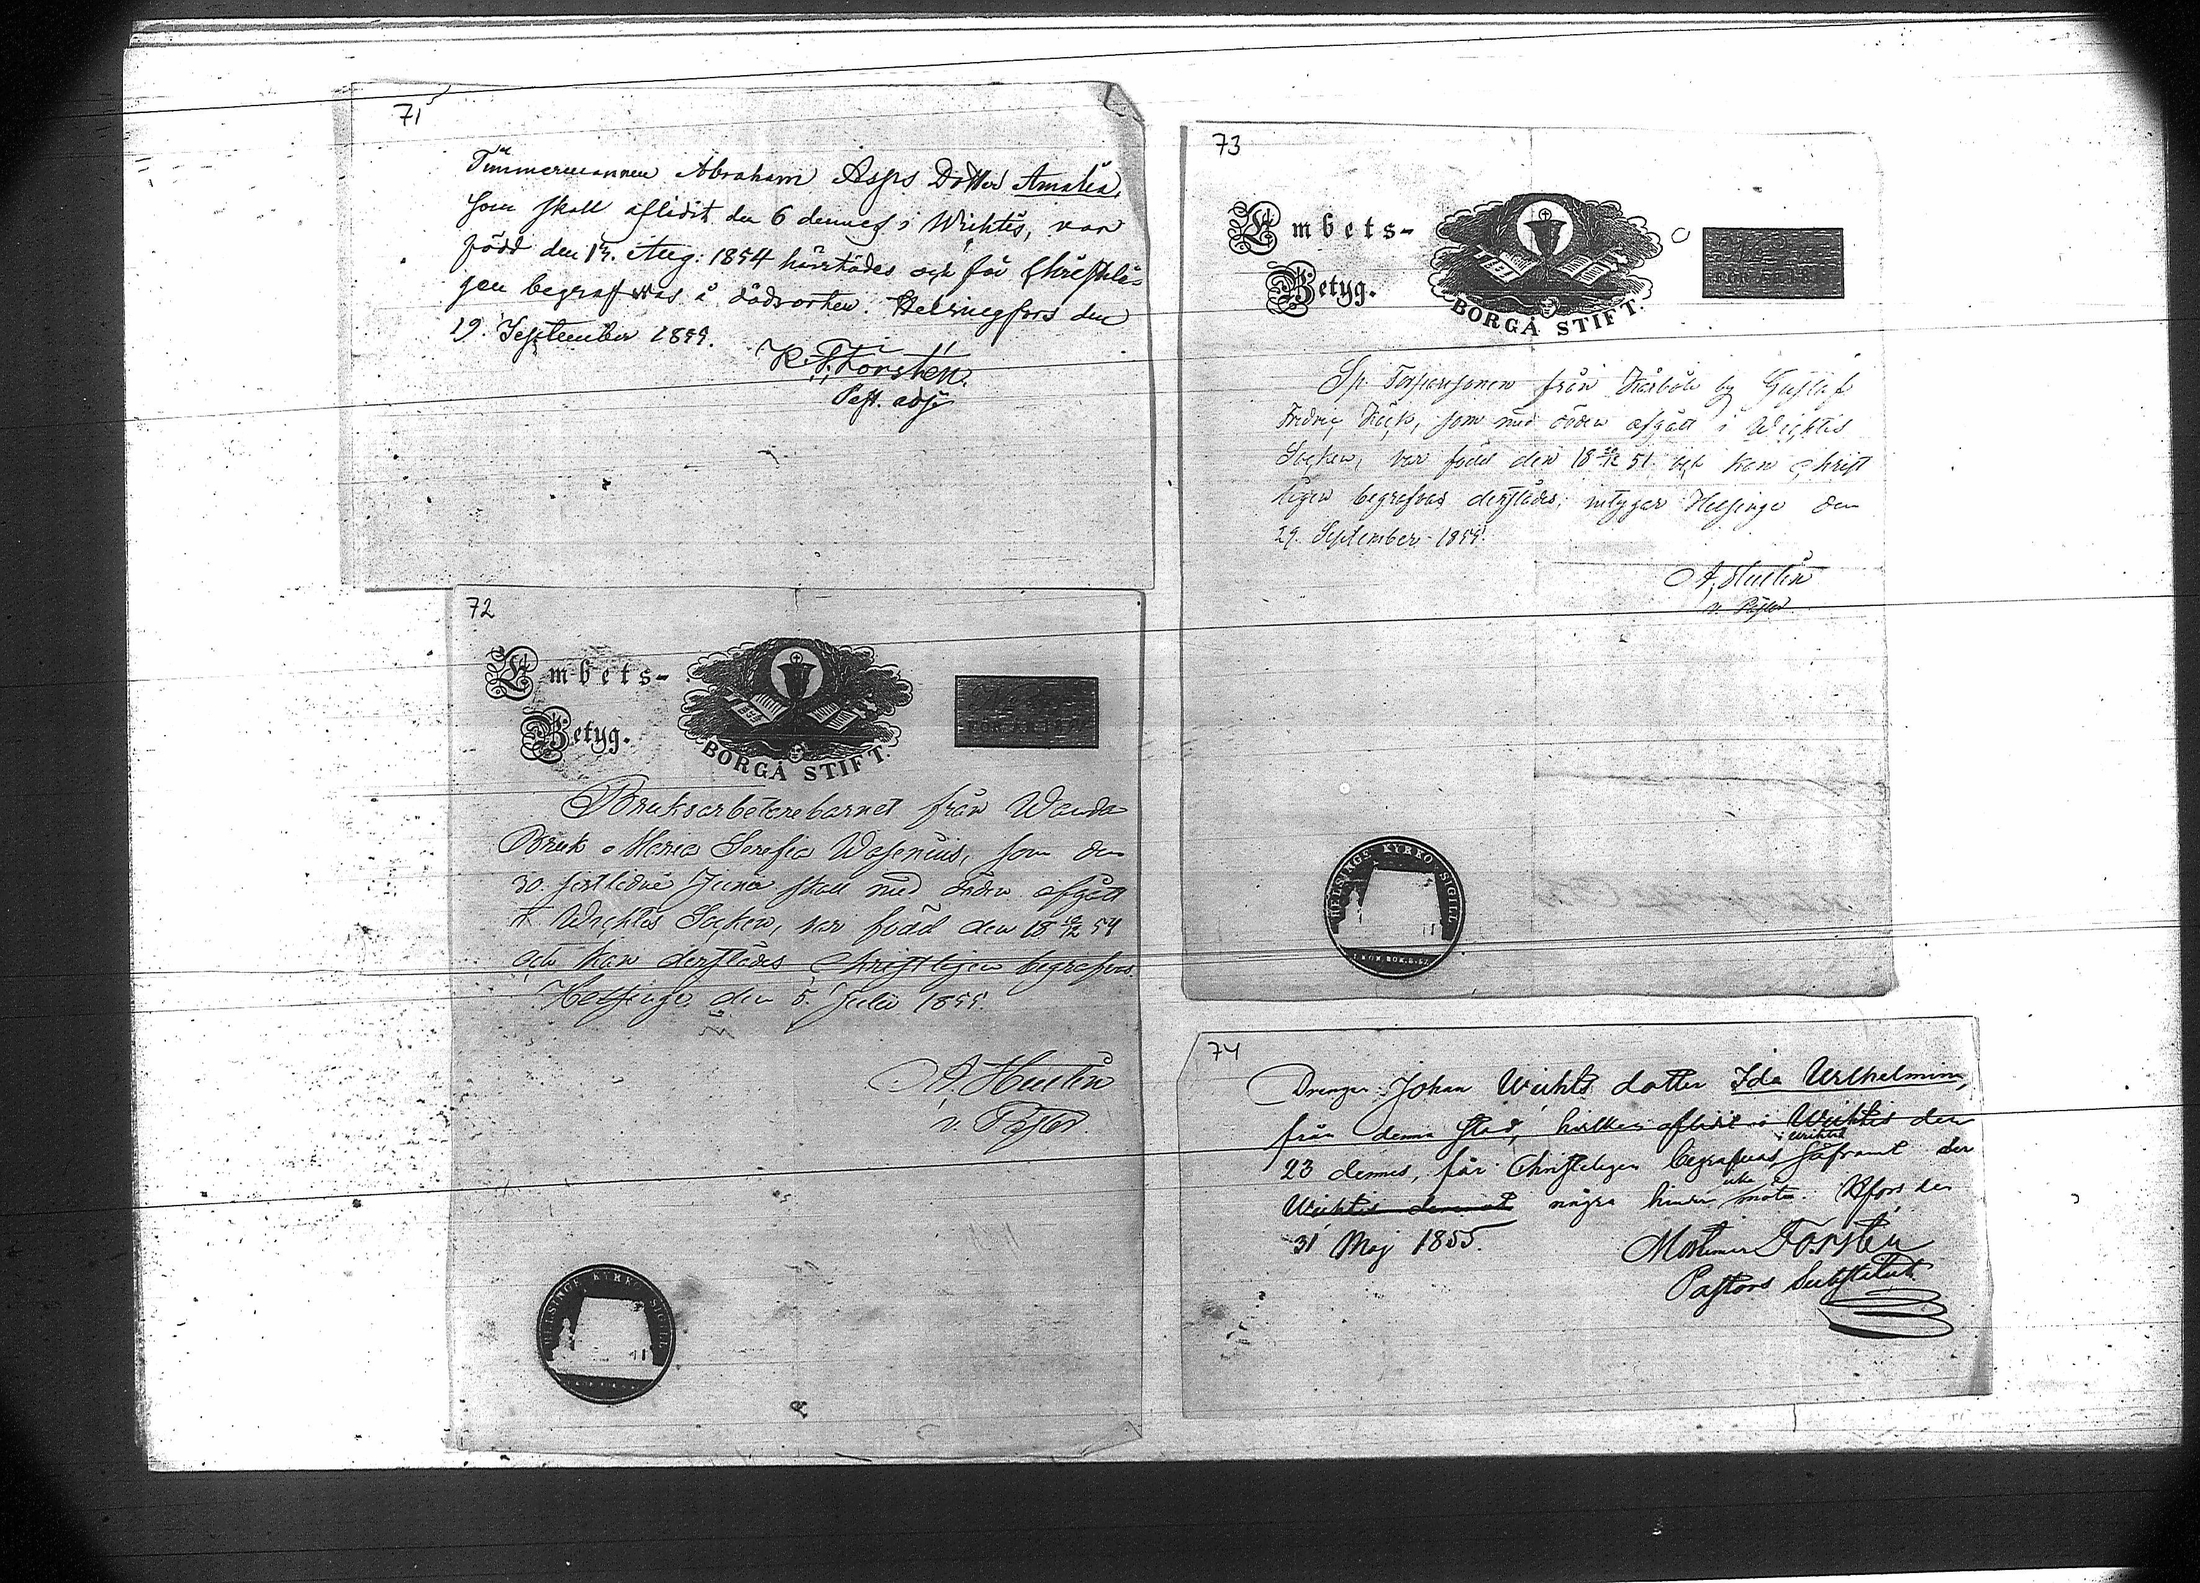 71
Timmermannen Abraham Asps Dotter Amalia,
som skall aflidit den 6 dennes i Wichtis, var
född den 17. Aug: 1854 härstädes och får Christeli-
gen begrafwas å dödsorten. Helsingfors den
19. September 1855.
K. F. Forstén.
Past. adj.
72
Embets-
Betyg.
BORGÅ STIFT.
Bruksarbetarebarnet från Wanda
Bruk Maria Serafia Wasenius, som den
30. sistledne Junii skall med döden afgått
i Wichtis Socken, var född den 18 /12 54
och kan derstädes Christligen begrafvas.
Helsinge den 5. Julii 1855.
A. Hulin
v. Pastor
HELSINGE KYRKO SIGILL
73
Embets-
Betyg.
BORGÅ STIFT.
Sp. Torparesonen från by Gustaf
Fredric som med döden afgått i Wichtis
Socken, var född den 18 /12 51 och kan Christ
ligen begrafvas derstädes, intygar Helsinge den
29. September 1855.
A. Hulin
v. Pastor
HELSINGE KYRKO SIGILL
74
Drengen Johan Wichts dotter Ida Wilhelmina,
från denna stad, hvilken aflidit i Wichtis den
23 dennes, får Christeligen begrafvas i Wichtis såframt der
Wichtis några hinder icke möta. Hfors den
31 Maj 1855.
Mortimer Forstén
Pastors Substitut